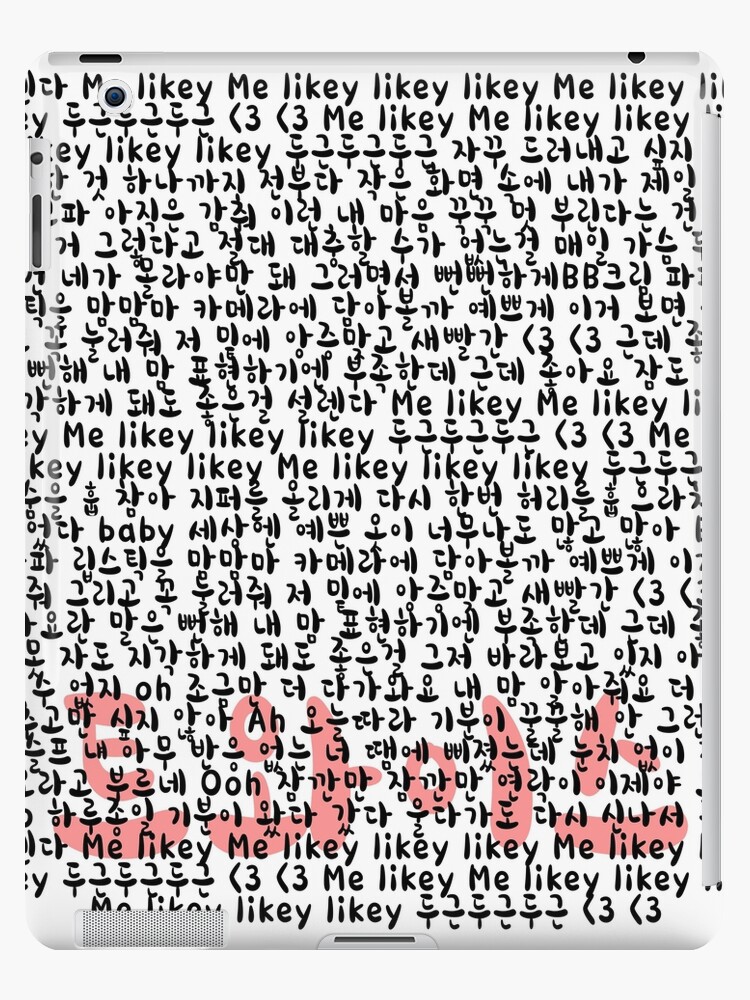 다 Me likey Me likey likey likey Me likey li
ey 두근두근두근 <3 <3 Me likey Me likey likey
key likey likey 두근두근두근 자꾸 드러내고 싶지
것 하나까지 전부다 작은 화면 속에 내가 제일
파 아직은 감춰 이런 내 마음 꾹꾹 부린다는 거
거 그렇다고 절대 대충할 수가 없는걸 매일 가슴
네가 몰라야만 돼 그러면서 뻔뻔하게BB크림 파
틱을 맘맘마 카메라에 담아볼까 예쁘게 이거 보면
꼭 눌러줘 저 밑에 앙증맞고 새빨간 <3 <3 근데 좋
뻔해 내 맘 표현하기엔 부족한데 근데 좋아요 잠도
각하게 돼도 좋은걸 설렌다 Me likey Me likey li
ey Me likey likey likey 두근두근두근 <3 <3 Me
key likey likey Me likey likey likey 두근두근
숨을 훕 참아 지퍼를 올리게 다시 한번 허리를 훕
다 baby 세상엔 예쁜 옷이 너무나도 많고 많아
파 립스틱을 맘맘마 카메라에 담아볼까 예쁘게 이
줘 그리고 꼭 눌러줘 저 밑에 앙증맞고 새빨간 <3
요란 말은 뻔해 내 맘 표현하기엔 부족한데 근데
자도 지각하게 돼도 좋은걸 그저 바라보고 있지
수 없지 oh 조금만 더 다가와요 내 맘 알아줘요 더
고만 싶지 않아 Ah 오늘따라 기분이 꾸꿀해 아 그런
프 내 아무 반응 없는 너 땜에 삐졌는데 눈치 없이
라고 부르네 Ooh 잠깐만 잠깐만 연락이 이제야
하루종일 기분이 왔다 갔다 울다가도 다시 신나서
다 Me likey Me likey likey likey Me likey
ey 두근두근두근 <3 <3 Me likey Me likey likey
Me likey likey likey 두근두근두근 <3 <3
트와이스